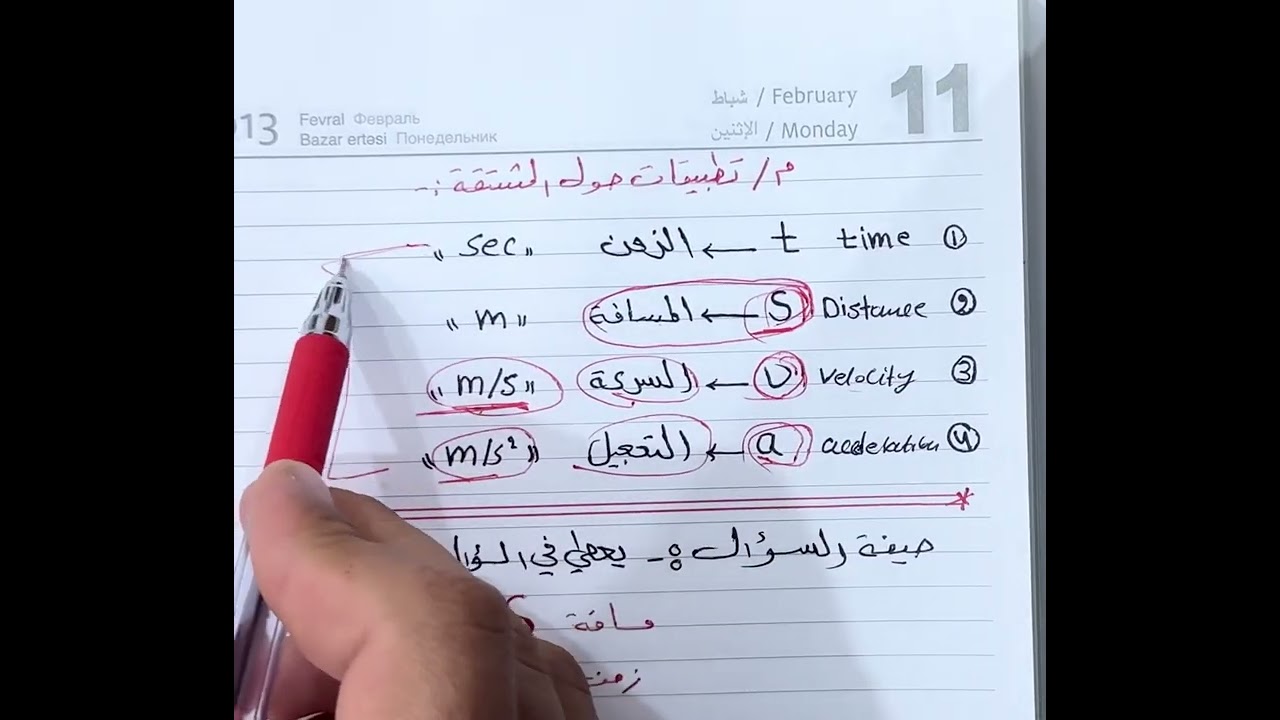 11
شباط / February
الإثنين / Monday
013
Fevral Февраль
Bazar ertəsi Понедельник
م/ تطبيقات حول المشتقة :-
① time t ← الزمن "sec"
② Distance S ← المسافة "m"
③ Velocity v ← السرعة "m/s"
④ t ← التعجيل "m/s²"
صيغة السؤال :- يعطي في السؤال
مسافة S
زمن